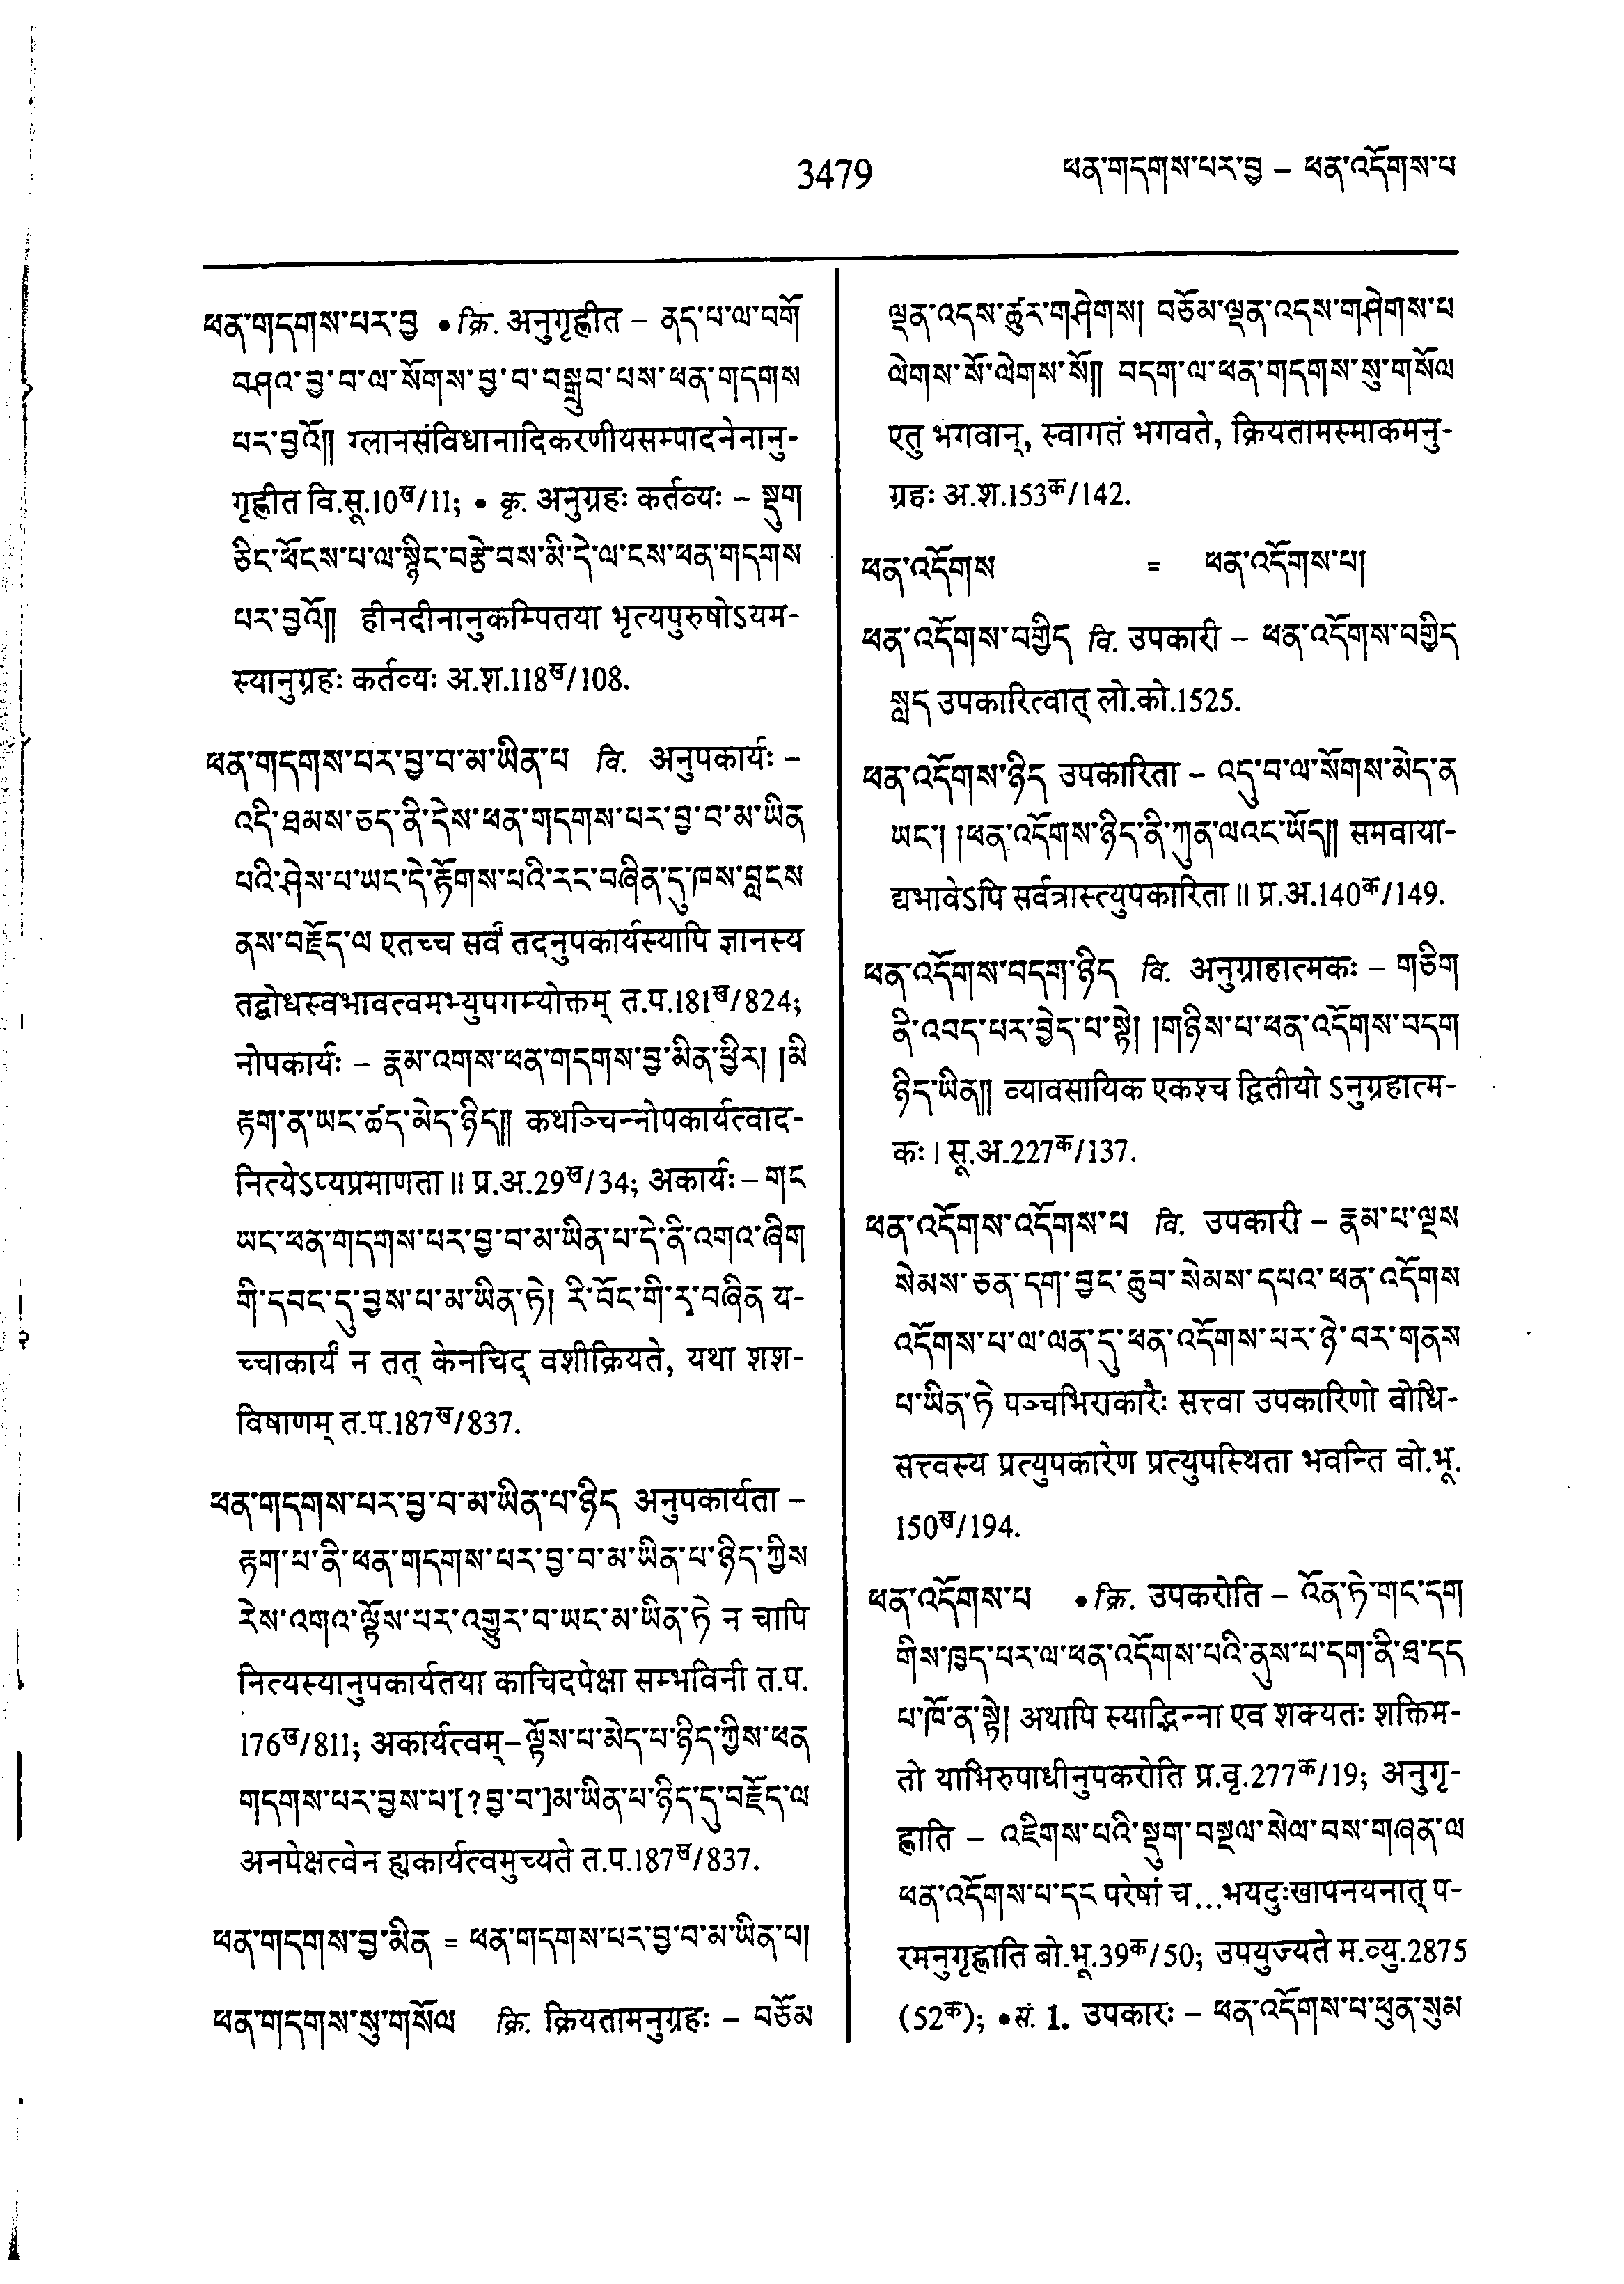 3479
ཕན་གདགས་པར་བྱ – ཕན་འདོགས་པ
ཕན་གདགས་པར་བྱ • क्रि. अनुगृह्णीत – ནད་པ་ལ་བགོ
བཤའ་བྱ་བ་ལ་སོགས་བྱ་བ་བསྒྲུབ་པས་ཕན་གདགས
པར་བྱའོ།། ग्लानसंविधानादिकरणीयसम्पादनेनानु-
गृह्णीत वि.सू.10ख/11; • कृ. अनुग्रहः कर्तव्यः – སྡུག
ཅིང་ཕོངས་པ་ལ་སྙིང་བརྩེ་བས་མི་དེ་ལ་ངས་ཕན་གདགས
པར་བྱའོ།། हीनदीनानुकम्पितया भृत्यपुरुषोऽयम-
स्यानुग्रहः कर्तव्यः अ.श.118ख/108.
ཕན་གདགས་པར་བྱ་བ་མ་ཡིན་པ वि. अनुपकार्यः –
འདི་ཐམས་ཅད་ནི་དེས་ཕན་གདགས་པར་བྱ་བ་མ་ཡིན
པའི་ཤེས་པ་ཡང་དེ་རྟོགས་པའི་རང་བཞིན་དུ་ཁས་བླངས
ནས་བརྗོད་ལ एतच्च सर्वं तदनुपकार्यस्यापि ज्ञानस्य
तद्बोधस्वभावत्वमभ्युपगम्योक्तम् त.प.181ख/824;
नोपकार्यः – རྣམ་འགས་ཕན་གདགས་བྱ་མིན་ཕྱིར། །མི
རྟག་ན་ཡང་ཚད་མེད་ཉིད།། कथञ्चिन्नोपकार्यत्वाद-
नित्येऽप्यप्रमाणता ॥ प्र.अ.29ख/34; अकार्यः – གང
ཡང་ཕན་གདགས་པར་བྱ་བ་མ་ཡིན་པ་དེ་ནི་འགའ་ཞིག
གི་དབང་དུ་བྱས་པ་མ་ཡིན་ཏེ། རི་བོང་གི་རྭ་བཞིན य-
च्चाकार्यं न तत् केनचिद् वशीक्रियते, यथा शश-
विषाणम् त.प.187ख/837.
ཕན་གདགས་པར་བྱ་བ་མ་ཡིན་པ་ཉིད अनुपकार्यता –
རྟག་པ་ནི་ཕན་གདགས་པར་བྱ་བ་མ་ཡིན་པ་ཉིད་ཀྱིས
རེས་འགའ་ལྟོས་པར་འགྱུར་བ་ཡང་མ་ཡིན་ཏེ न चापि
नित्यस्यानुपकार्यतया काचिदपेक्षा सम्भविनी त.प.
176ख/811; अकार्यत्वम् – ལྟོས་པ་མེད་པ་ཉིད་ཀྱིས་ཕན
གདགས་པར་བྱས་པ་[?བྱ་བ་]མ་ཡིན་པ་ཉིད་དུ་བརྗོད་ལ
अनपेक्षत्वेन ह्यकार्यत्वमुच्यते त.प.187ख/837.
ཕན་གདགས་བྱ་མིན = ཕན་གདགས་པར་བྱ་བ་མ་ཡིན་པ།
ཕན་གདགས་སུ་གསོལ क्रि. क्रियतामनुग्रहः – བཅོམ
ལྡན་འདས་ཚུར་གཤེགས། བཅོམ་ལྡན་འདས་གཤེགས་པ
ལེགས་སོ་ལེགས་སོ།། བདག་ལ་ཕན་གདགས་སུ་གསོལ
एतु भगवान्, स्वागतं भगवते, क्रियतामस्माकमनु-
ग्रहः अ.श.153क/142.
ཕན་འདོགས = ཕན་འདོགས་པ།
ཕན་འདོགས་བགྱིད वि. उपकारी – ཕན་འདོགས་བགྱིད
སླད उपकारित्वात् लो.को.1525.
ཕན་འདོགས་ཉིད उपकारिता – འདུ་བ་ལ་སོགས་མེད་ན
ཡང་། །ཕན་འདོགས་ཉིད་ནི་ཀུན་ལའང་ཡོད།། समवाया-
द्यभावेऽपि सर्वत्रास्त्युपकारिता ॥ प्र.अ.140क/149.
ཕན་འདོགས་བདག་ཉིད वि. अनुग्राहात्मकः – གཅིག
ནི་འབད་པར་བྱེད་པ་སྟེ། །གཉིས་པ་ཕན་འདོགས་བདག
ཉིད་ཡིན།། व्यावसायिक एकश्च द्वितीयो ऽनुग्रहात्म-
कः । सू.अ.227क/137.
ཕན་འདོགས་འདོགས་པ वि. उपकारी – རྣམ་པ་ལྔས
སེམས་ཅན་དག་བྱང་ཆུབ་སེམས་དཔའ་ཕན་འདོགས
འདོགས་པ་ལ་ལན་དུ་ཕན་འདོགས་པར་ཉེ་བར་གནས
པ་ཡིན་ཏེ पञ्चभिराकारैः सत्त्वा उपकारिणो बोधि-
सत्त्वस्य प्रत्युपकारेण प्रत्युपस्थिता भवन्ति बो.भू.
150ख/194.
ཕན་འདོགས་པ • क्रि. उपकरोति – འོན་ཏེ་གང་དག
གིས་ཁྱད་པར་ལ་ཕན་འདོགས་པའི་ནུས་པ་དག་ནི་ཐ་དད
པ་ཁོ་ན་སྟེ། अथापि स्याद्भिन्ना एव शक्यतः शक्तिम-
तो याभिरुपाधीनुपकरोति प्र.वृ.277क/19; अनुगृ-
ह्णाति – འཇིགས་པའི་སྡུག་བསྔལ་སེལ་བས་གཞན་ལ
ཕན་འདོགས་པ་དང परेषां च...भयदुःखापनयनात् प-
रमनुगृह्णाति बो.भू.39क/50; उपयुज्यते म.व्यु.2875
(52क); • सं. 1. उपकारः – ཕན་འདོགས་པ་ཕུན་སུམ